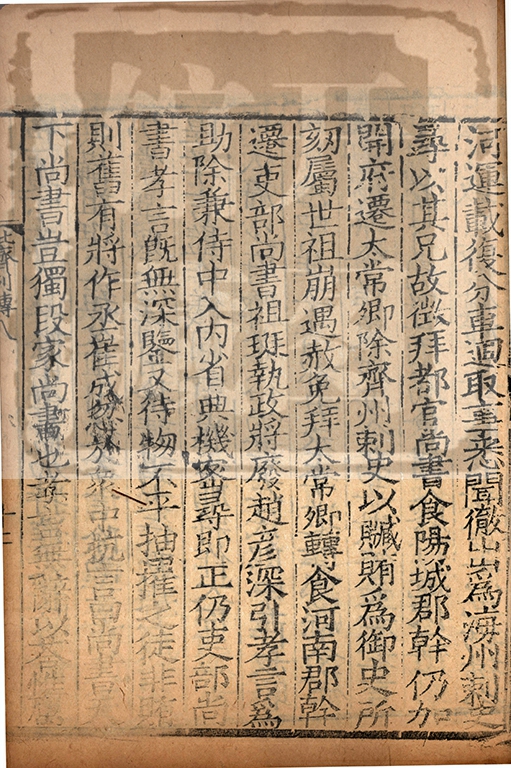 河運載復分車迴取事悉聞徹出爲海州刺史
尋以其兄故徵拜都官尚書食陽城郡幹仍加
開府遷太常卿除齊州刺史以贓賄爲御史所
劾屬世祖崩遇赦免拜太常卿轉食河南郡幹
遷吏部尚書祖珽執政將廢趙彦深引孝言爲
助除兼侍中入内省典機密尋即正仍吏部尚
書孝言旣無深鑒又待物不平抽擢之徒非賄
則舊有將作丞崔成忽於衆中抗言曰尚書天
下尚書豈獨段家尚書也孝言無辭以荅
北齊列傳八